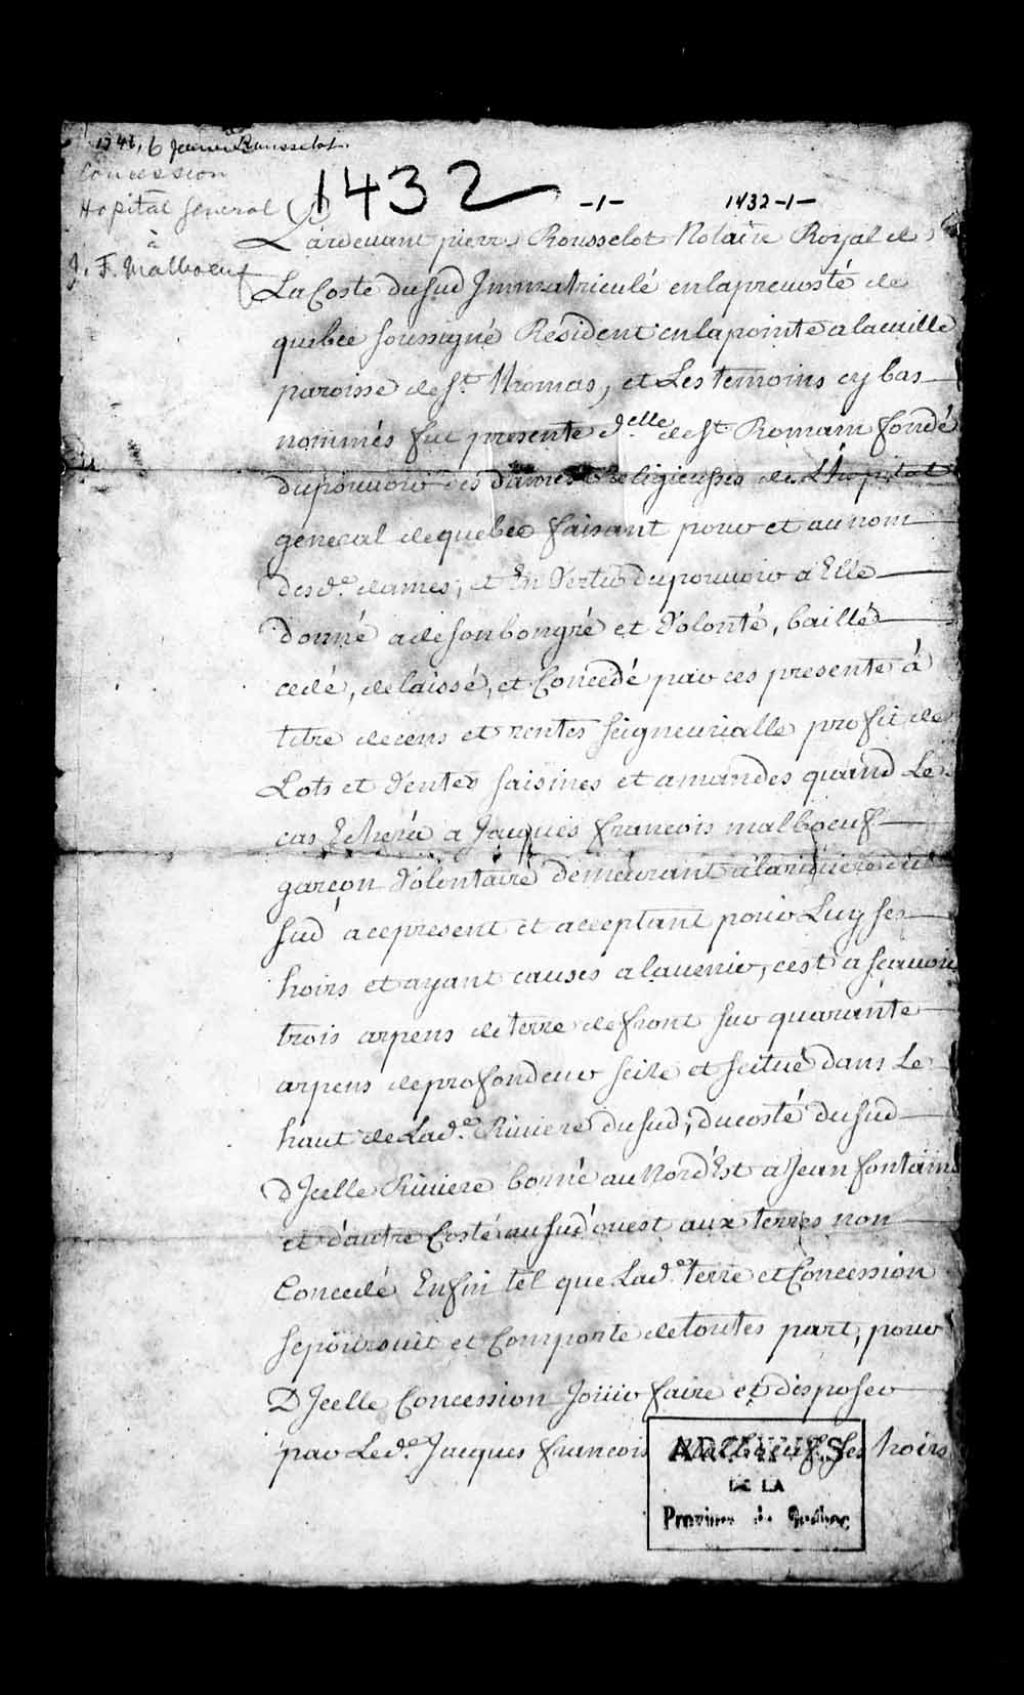 6 Rousselot.
Concession
Hopital General
à
J. F. Malboeuf
1432
-1-
1432-1-
Pardevant pierre Rousselot Notaire Royal de
La Coste du Sud Immatriculé en la prevosté de
quebec soussigné Resident en la pointe a la caille
paroisse de St. Thomas, et Les temoins cy bas
nommés fut presente d.elle de St Romain fondé
du pouvoir des dames Religieuses de L'hopital
general de quebec faisant pour et au nom
des d.e dames, et En Vertu du pouvoir a Elle
donné a de son bon gré et Volonté, baillé
cedé, delaissé, et Concedé par ces presente à
titre de cens et rentes seigneurialle profit de
Lots et Ventes saisines et amandes quand Le
cas Echera a Jacques francois malboeuf
garçon Volontaire demeurant a la riviere du
Sud a ce present et acceptant pour Luy ses
hoirs et ayant causes a lavenir, cest a scavoir
trois arpens de terre de front sur quarante
arpens de profondeur scize et scitué dans Le
haut de Lad.e Riviere du Sud, du costé du Sud
D'Icelle Riviere borné au Nord Est a Jean fontaine
et d'autre Costé au Sud ouest aux terres non
Concedé Enfin tel que Lad.e terre et Concession
se poursuit et Comporte de toutes part, pour
D'Icelle Concession Jouir faire et disposer
par Led.e Jacques francois Malboeuf, ses hoirs
ARCHIVES
DE LA
Province de Québec